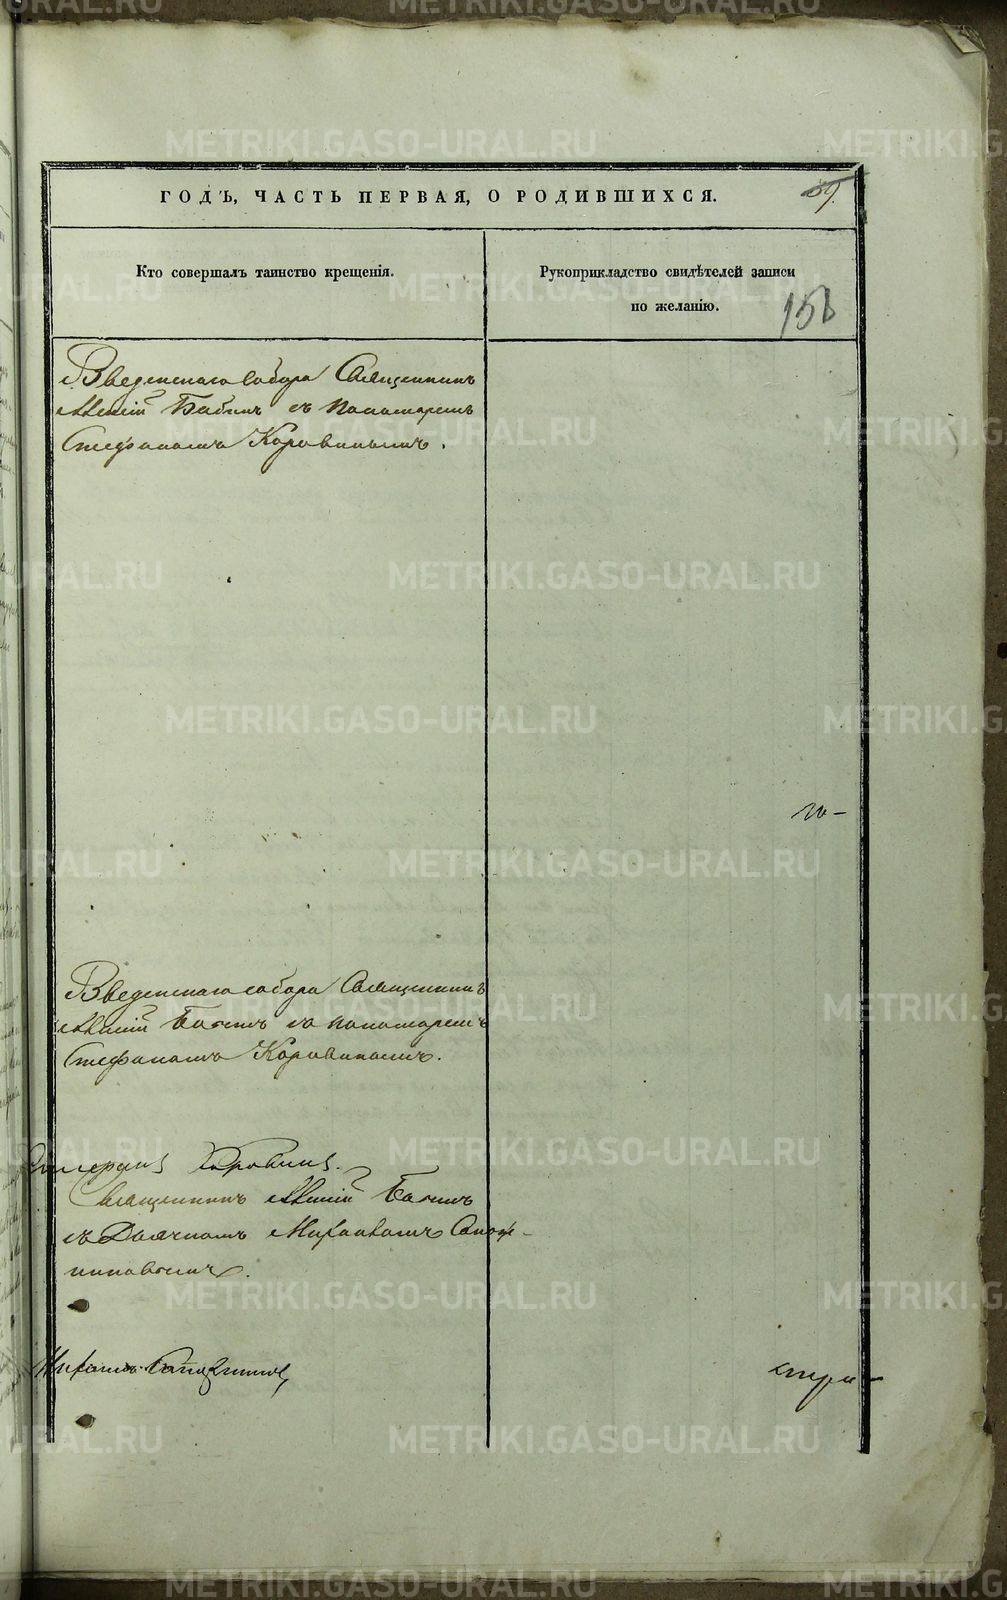 ГОДЪ, ЧАСТЬ ПЕРВАЯ, О РОДИВШИХСЯ.
59.
Кто совершалъ таинство крещенія.
Рукоприкладство свидѣтелей записи
по желанію.
Введенскаго собора Священникъ
Бабинъ съ пономаремъ
Стефаномъ Коровинымъ.
Введенскаго собора Священникъ
Бабинъ съ пономаремъ
Стефаномъ Коровинымъ.
Коровинъ.
Священникъ Бабинъ
съ Дьячкомъ Михаиломъ
Михаилъ
METRIKI.GASO-URAL.RU